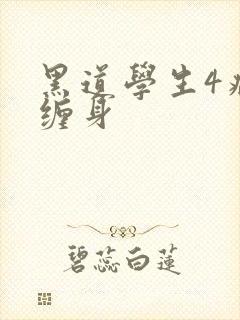 黑道學生4
缠身
碧蕊白蓮